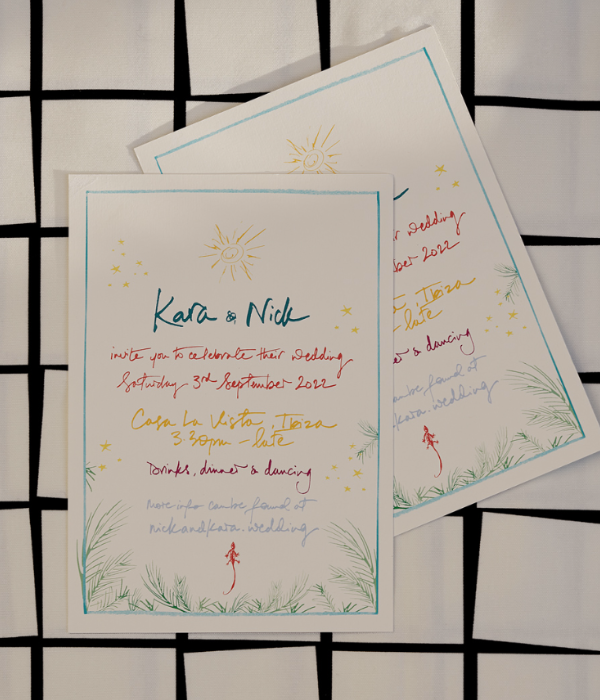 Kara & Nick
invite you to celebrate their wedding
Saturday 3rd September 2022
Casa La Vista, Ibiza
3.30pm - late
Drinks, dinner & dancing
More info can be found at
nickandkara.wedding
r wedding
ber 2022
, Ibiza
- late
er & dancing
can be found at
dkara.wedding